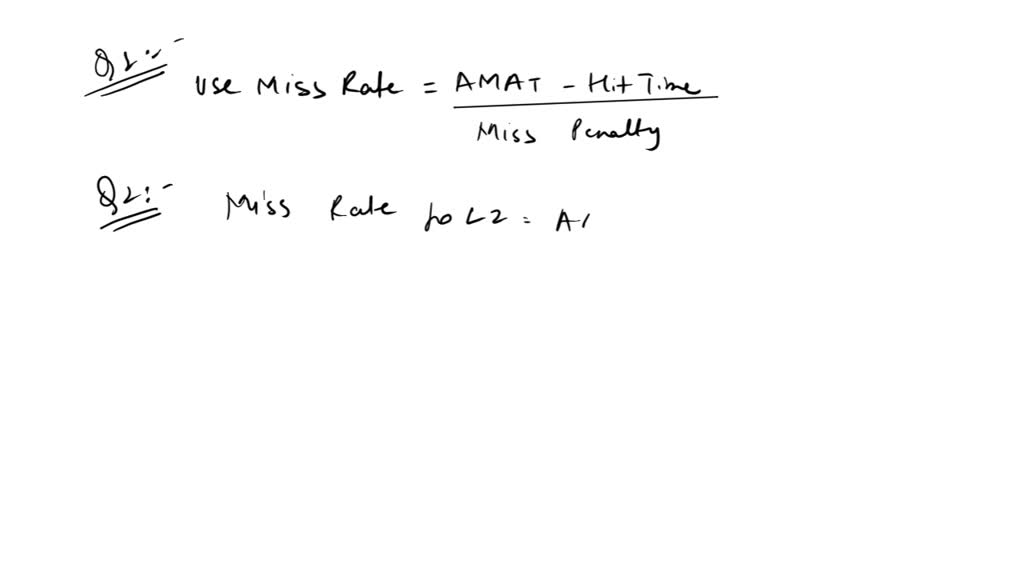 Q1:-
use Miss Rate = AMAT - Hit Time
Miss Penalty
Q2:-
Miss Rate for L2 = A